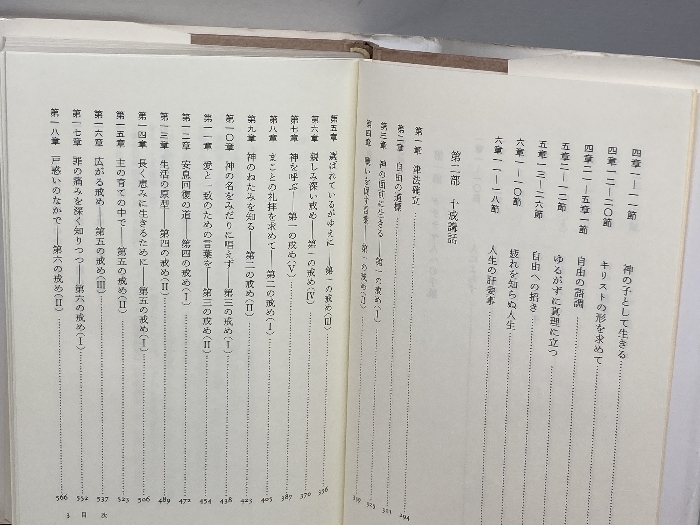 四章一—一一節 神の子として生きる
四章一二—二〇節 キリストの形を求めて
四章二一—五章一節 自由の諧調
五章二—一二節 ゆるがずに真理に立つ
五章一三—二六節 自由への招き
六章一—一〇節 疲れを知らぬ人生
六章一一—一八節 人生の肝要事
第二部 十戒講話
第一章 律法確立 294
第二章 自由の道標
第三章 神の面前に生きる——第一の戒め(Ⅰ)
第四章
第五章 選ばれているがゆえに——第一の戒め(Ⅲ) 356
第六章 親しみ深い戒め——第一の戒め(Ⅳ) 370
第七章 神を呼ぶ——第一の戒め(Ⅴ) 387
第八章 まことの礼拝を求めて——第二の戒め(Ⅰ) 405
第九章 神のねたみを知る——第二の戒め(Ⅱ) 423
第一〇章 神の名をみだりに唱えず——第三の戒め(Ⅰ) 438
第一一章 愛と一致のための言葉を——第三の戒め(Ⅱ) 454
第一二章 安息回復の道——第四の戒め(Ⅰ) 472
第一三章 生活の原型——第四の戒め(Ⅱ) 489
第一四章 長く恵みに生きるために——第五の戒め(Ⅰ) 506
第一五章 主の育ての中で——第五の戒め(Ⅱ) 523
第一六章 広がる戒め——第五の戒め(Ⅲ) 537
第一七章 罪の痛みを深く知りつつ——第六の戒め(Ⅰ) 552
第一八章 戸惑いのなかで——第六の戒め(Ⅱ) 566
3 目次